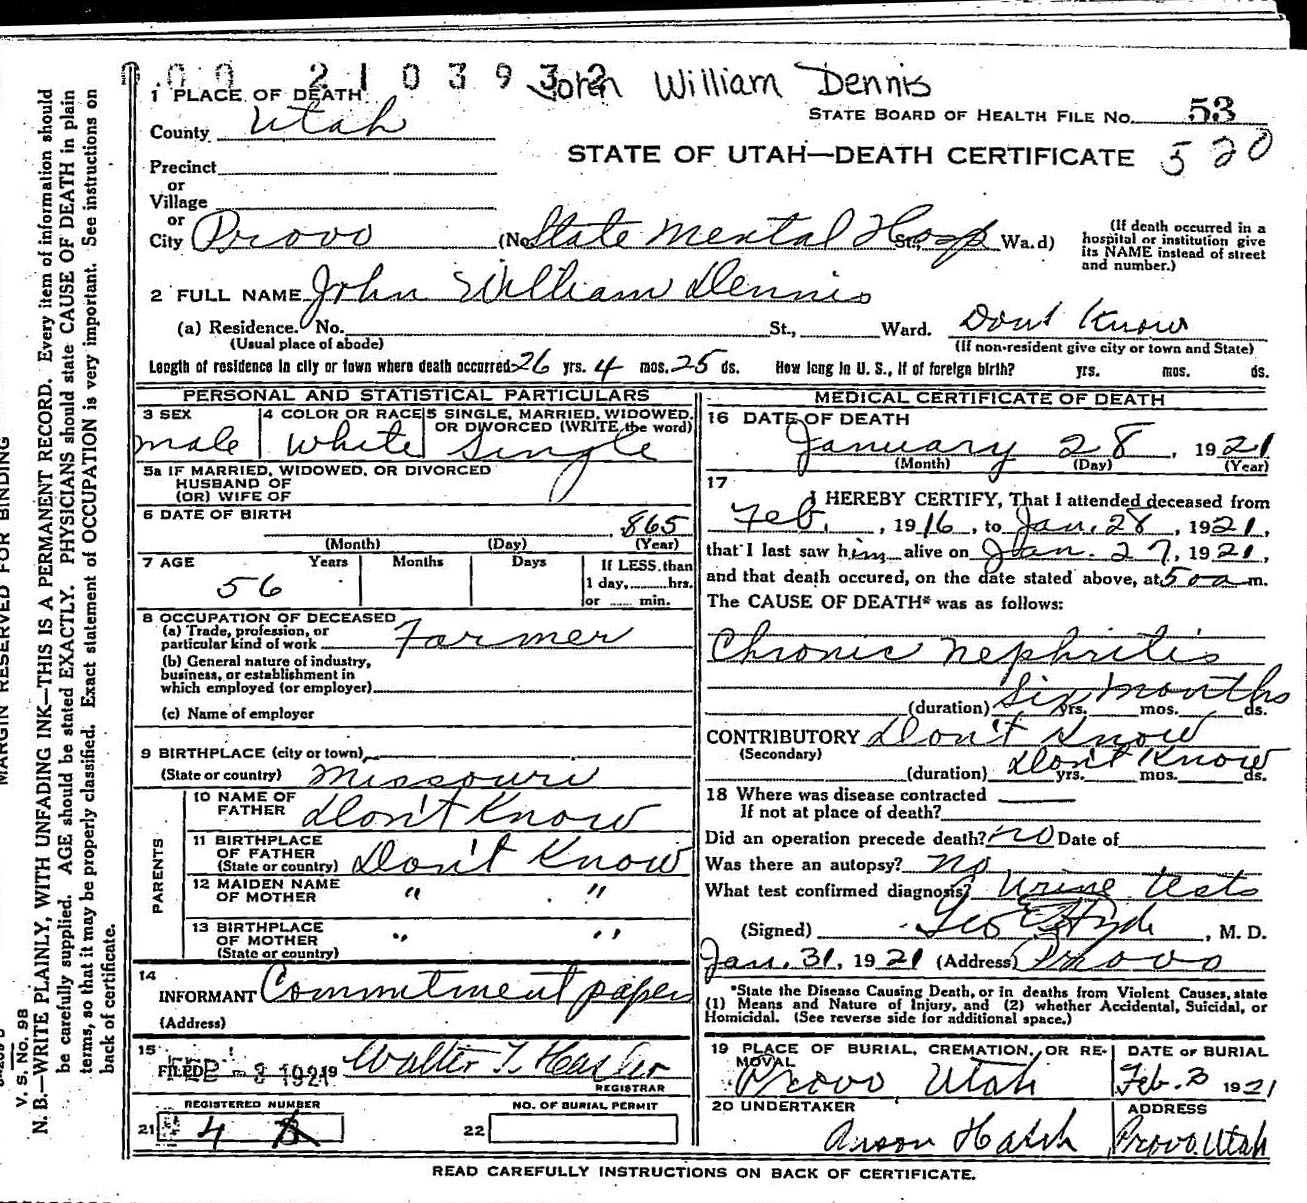 0 0 0 2 1 0 3 9 3 2 John William Dennis
1 PLACE OF DEATH
STATE BOARD OF HEALTH FILE No. 53
County Utah
STATE OF UTAH—DEATH CERTIFICATE 520
Precinct
or
Village
or
City Provo (No State Mental Hosp St., Wa.d)
(If death occurred in a hospital or institution give its NAME instead of street and number.)
2 FULL NAME John William Dennis
(a) Residence. No. St., Ward. Dont Know
(Usual place of abode) (If non-resident give city or town and State)
Length of residence in city or town where death occurred 26 yrs. 4 mos. 25 ds. How long in U. S., if of foreign birth? yrs. mos. ds.
PERSONAL AND STATISTICAL PARTICULARS
3 SEX
male
4 COLOR OR RACE
White
5 SINGLE, MARRIED, WIDOWED, OR DIVORCED (WRITE the word)
Single
5a IF MARRIED, WIDOWED, OR DIVORCED
HUSBAND OF
(OR) WIFE OF
6 DATE OF BIRTH
865
(Month) (Day) (Year)
7 AGE Years Months Days If LESS than
1 day, hrs.
or min.
56
8 OCCUPATION OF DECEASED
(a) Trade, profession, or
particular kind of work Farmer
(b) General nature of industry,
business, or establishment in
which employed (or employer)
(c) Name of employer
9 BIRTHPLACE (city or town)
(State or country) Missouri
PARENTS
10 NAME OF
FATHER Don't Know
11 BIRTHPLACE
OF FATHER
(State or country) Don't Know
12 MAIDEN NAME
OF MOTHER " "
13 BIRTHPLACE
OF MOTHER
(State or country) " "
14
INFORMANT Commitment papers
(Address)
15
FILED FEB - 3 1921 19 Walter T.
REGISTRAR
REGISTERED NUMBER
21 4
NO. OF BURIAL PERMIT
22
MEDICAL CERTIFICATE OF DEATH
16 DATE OF DEATH
January 28, 1921
(Month) (Day) (Year)
17
I HEREBY CERTIFY, That I attended deceased from
Feb., 1916, to Jan. 28, 1921,
that I last saw him alive on Jan. 27, 1921,
and that death occured, on the date stated above, at 5 00 a m.
The CAUSE OF DEATH* was as follows:
Chronic Nephritis
(duration) Six months yrs. mos. ds.
CONTRIBUTORY Don't Know
(Secondary)
(duration) Don't Know yrs. mos. ds.
18 Where was disease contracted
If not at place of death?
Did an operation precede death? no Date of
Was there an autopsy? no
What test confirmed diagnosis? Urine tests
(Signed) Geo E Hyde, M. D.
Jan. 31, 1921 (Address) Provo
*State the Disease Causing Death, or in deaths from Violent Causes, state
(1) Means and Nature of Injury, and (2) whether Accidental, Suicidal, or
Homicidal. (See reverse side for additional space.)
19 PLACE OF BURIAL, CREMATION, OR RE-
MOVAL
Provo Utah
DATE OF BURIAL
Feb. 3 1921
20 UNDERTAKER
Anson Hatch
ADDRESS
Provo. Utah
READ CAREFULLY INSTRUCTIONS ON BACK OF CERTIFICATE.
MARGIN RESERVED FOR BINDING
V. S. No. 98
N. B.—WRITE PLAINLY, WITH UNFADING INK—THIS IS A PERMANENT RECORD. Every item of information should
be carefully supplied. AGE should be stated EXACTLY. PHYSICIANS should state CAUSE OF DEATH in plain
terms, so that it may be properly classified. Exact statement of OCCUPATION is very important. See instructions on
back of certificate.